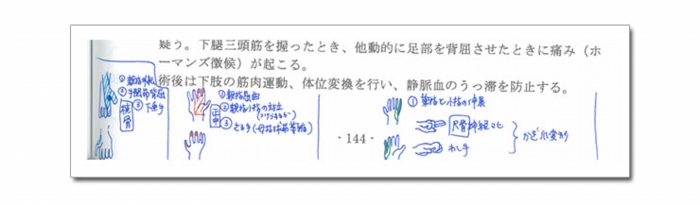 疑う。下腿三頭筋を握ったとき、他動的に足部を背屈させたときに痛み(ホ
ーマンズ徴候)が起こる。
術後は下肢の筋肉運動、体位変換を行い、静脈血のうっ滞を防止する。
② 手関節背屈
③ 下垂手
橈骨
① 母指屈曲
② 母指小指の対立
正中
③ さる手(母指球筋萎縮)
・144・
①
尺骨神経マヒ
わし手
かぎ爪変形